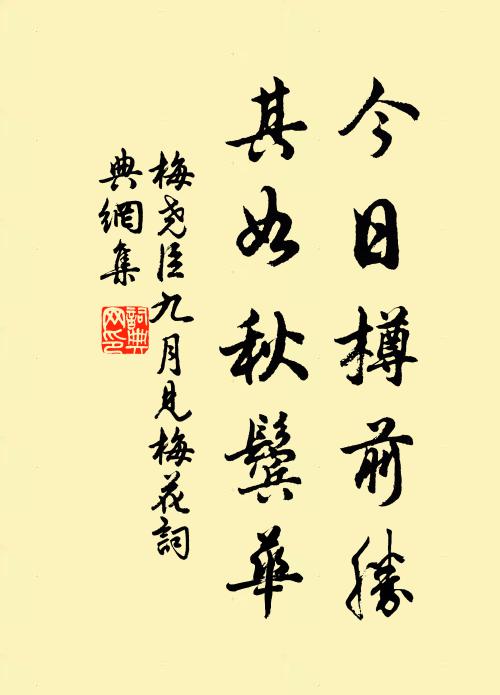 今日樽前勝
其如秋鬢華
梅尧臣九月見梅花詞
典網集
詞典网印